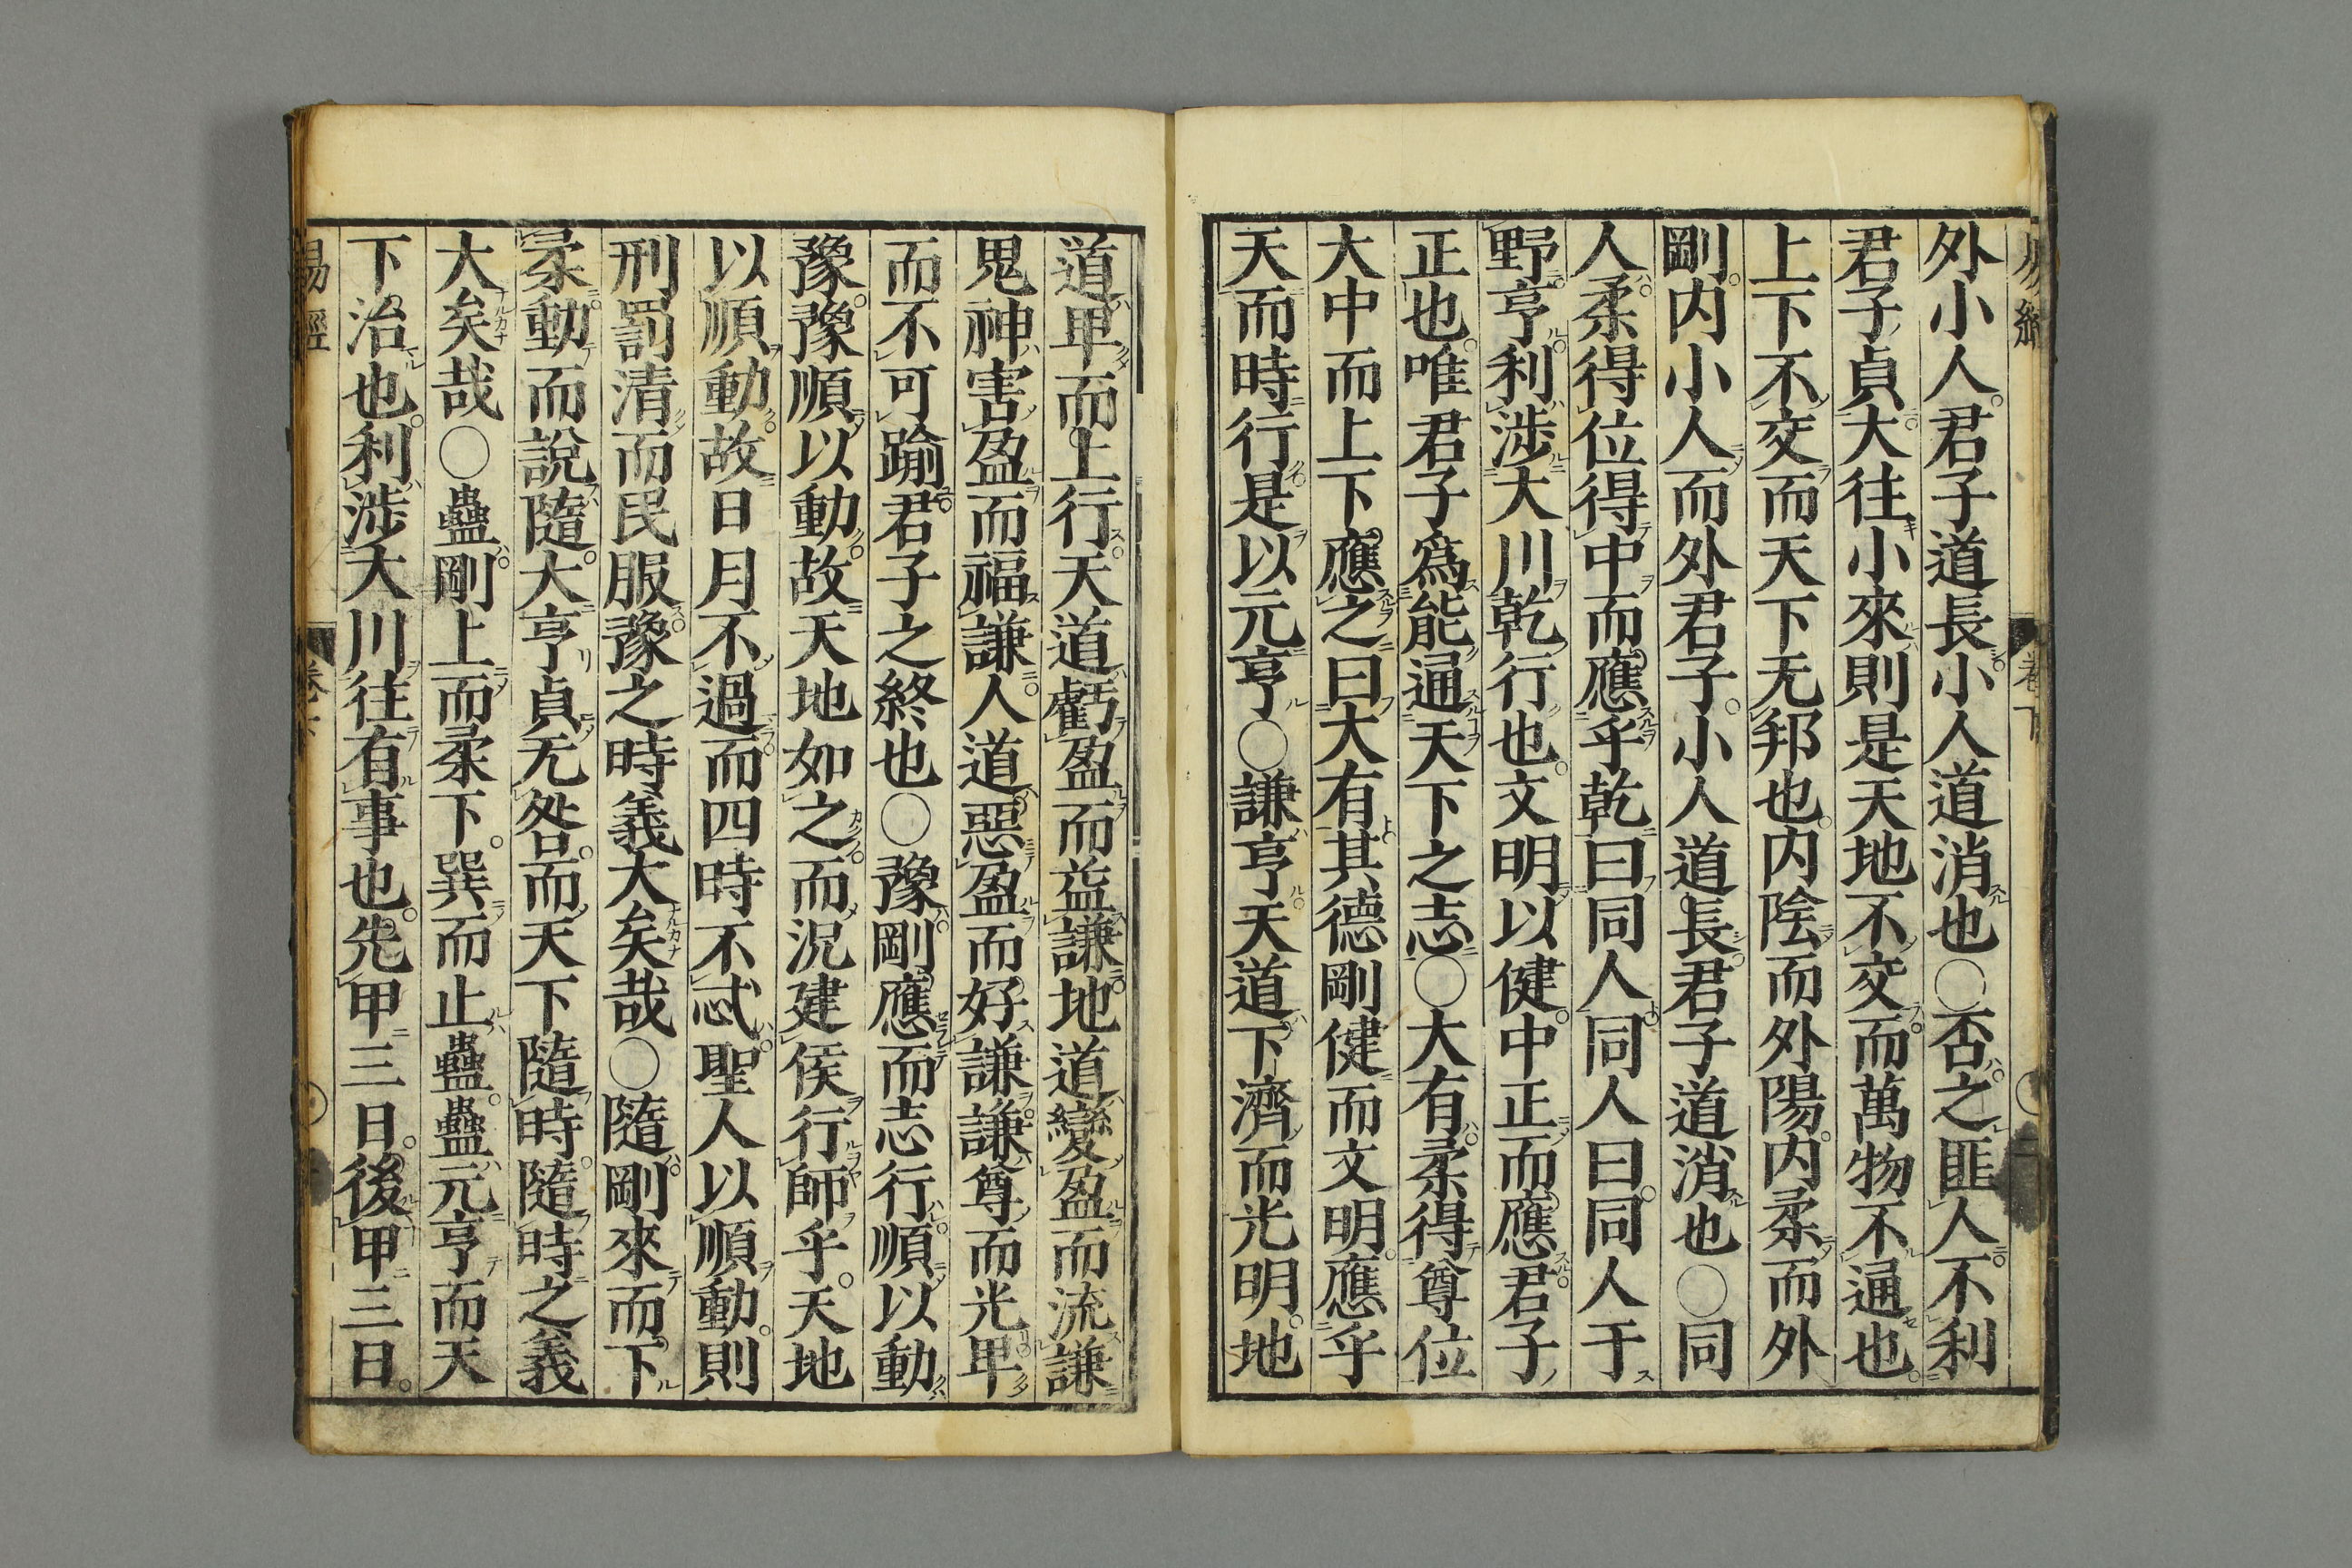 易經 卷下
外小人君子道長小人道消也○否之匪人不利
君子貞大往小來則是天地不交而萬物不通也
上下不交而天下无邦也内陰而外陽内柔而外
剛内小人而外君子小人道長君子道消也○同
人柔得位得中而應乎乾曰同人同人曰同人于
野亨利渉大川乾行也文明以健中正而應君子
正也唯君子爲能通天下之志○大有柔得尊位
大中而上下應之曰大有其德剛健而文明應乎
天而時行是以元亨○謙亨天道下濟而光明地
道卑而上行天道虧盈而益謙地道變盈而流謙
鬼神害盈而福謙人道惡盈而好謙謙尊而光卑
而不可踰君子之終也○豫剛應而志行順以動
豫豫順以動故天地如之而況建侯行師乎天地
以順動故日月不過而四時不忒聖人以順動則
刑罰清而民服豫之時義大矣哉○隨剛來而下
柔動而說隨大亨貞无咎而天下隨時隨時之義
大矣哉○蠱剛上而柔下巽而止蠱蠱元亨而天
下治也利渉大川往有事也先甲三日後甲三日
易經 卷下